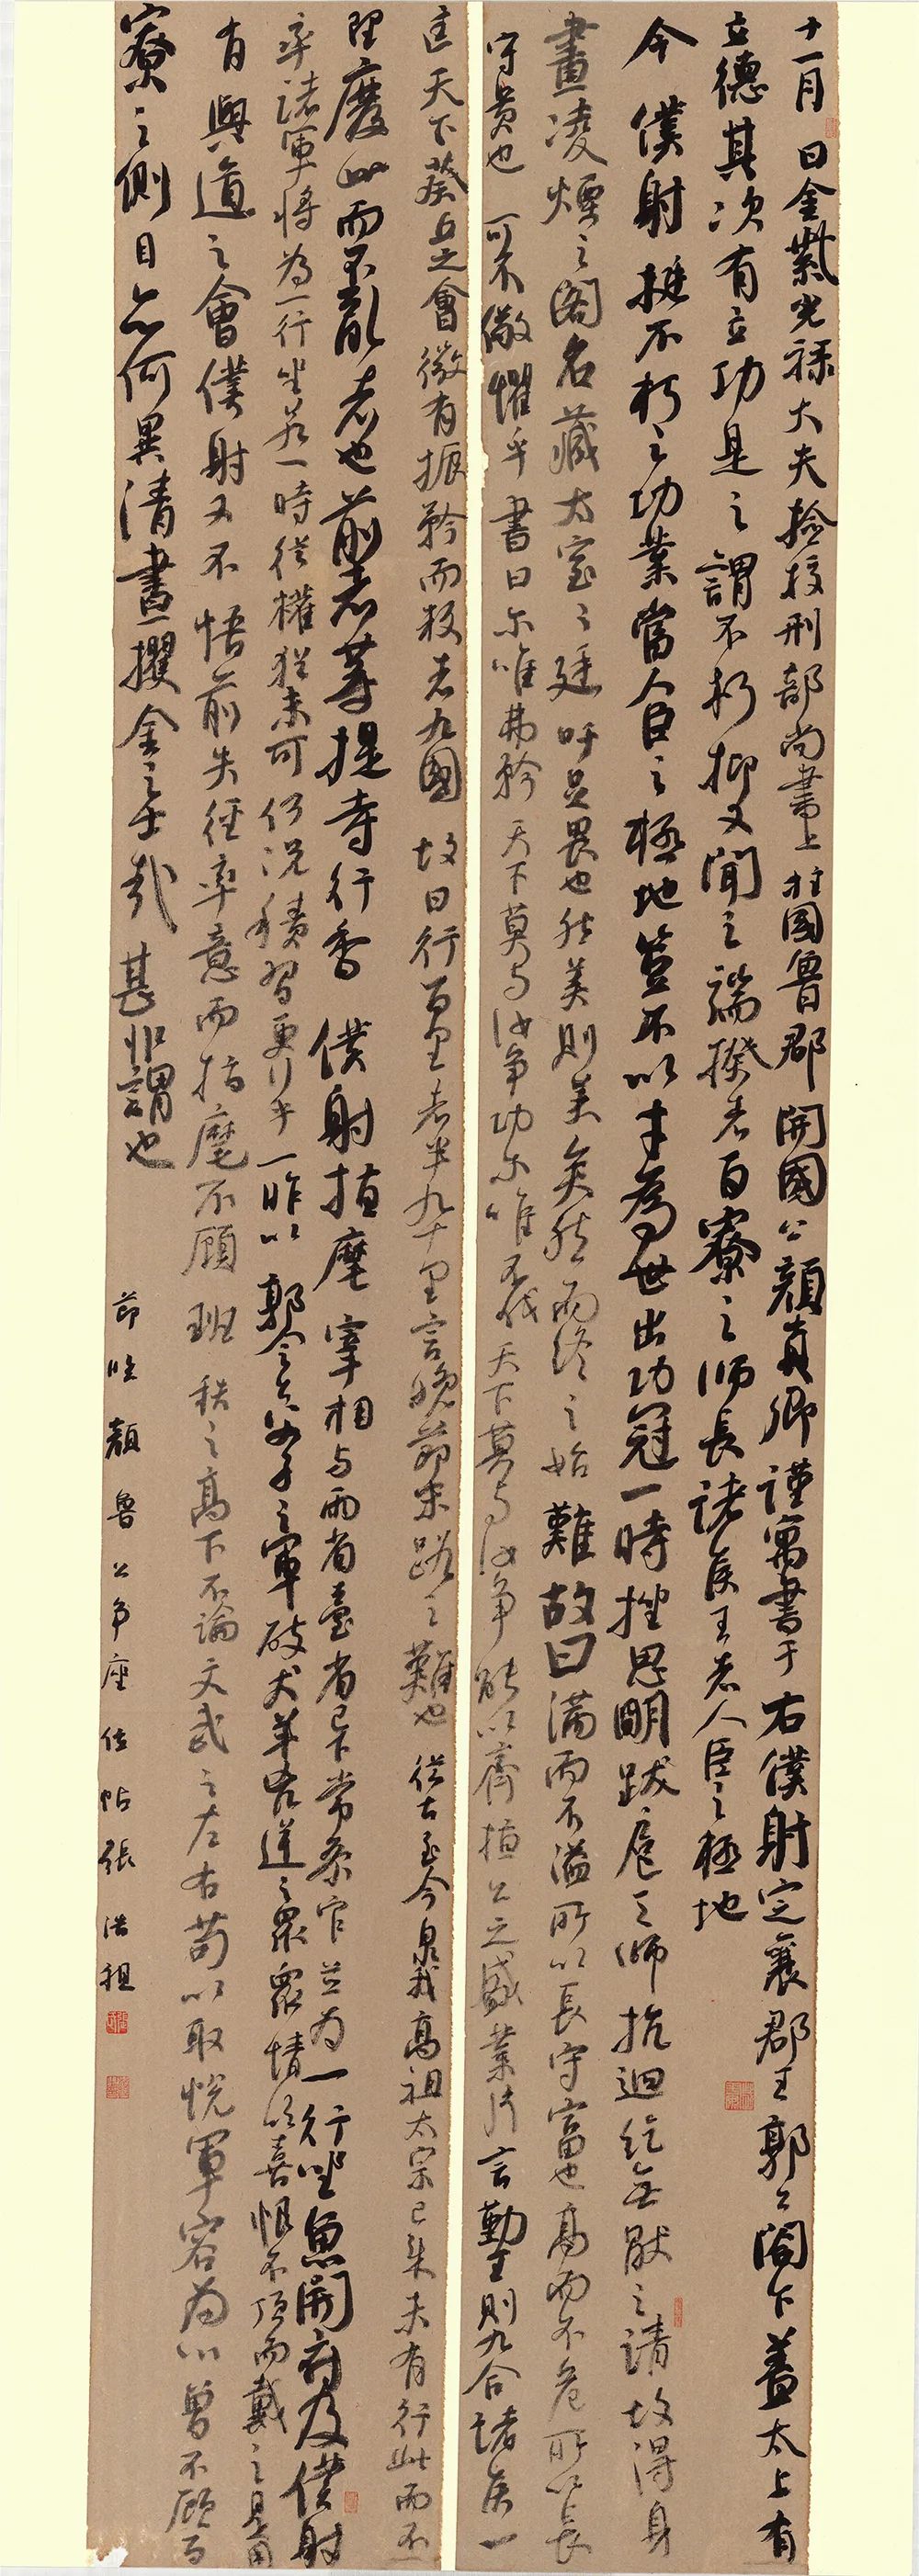 十一月日金紫光禄大夫捡挍刑部尚書上柱國魯郡開國公顔真卿謹寓書于右僕射定襄郡王郭公閤下蓋太上有
立德其次有立功是之謂不朽抑又聞之端揆者百寮之師長諸侯王者人臣之極地
今僕射挺不朽之功業當人臣之極地豈不以才為世出功冠一時挫思明跋扈之師抗迴紇無厭之請故得身
畫凌煙之閣名藏太室之廷吁足畏也然美則美矣然而終之始難故曰滿而不溢所以長守富也高而不危所以長
守貴也可不儆懼乎書曰尔唯弗矜天下莫与汝争功尔唯不伐天下莫与汝争能以齊桓公之盛業片言勤王則九合諸侯一
匡天下葵丘之會微有振矜而叛者九國故曰行百里者半九十里言晚節末路之難也從古至今泉我高祖太宗已来未有行此而不
理廢此而不亂者也前者菩提寺行香僕射指麾宰相与兩省臺省已下常参官並為一行坐魚開府及僕射
率諸軍將為一行坐若一時從權猶未可何況積習更行乎一昨以郭令公父子之軍破犬羊凶逆之衆衆情欣喜恨不頂而戴之是用
有興道之會僕射又不悟前失徑率意而指麾不顧班秩之高下不論文武之左右苟以取悅軍容為心曾不顧百
寮之側目亦何異清晝攫金之士哉甚非謂也
節臨顔魯公争座位帖張浩祖